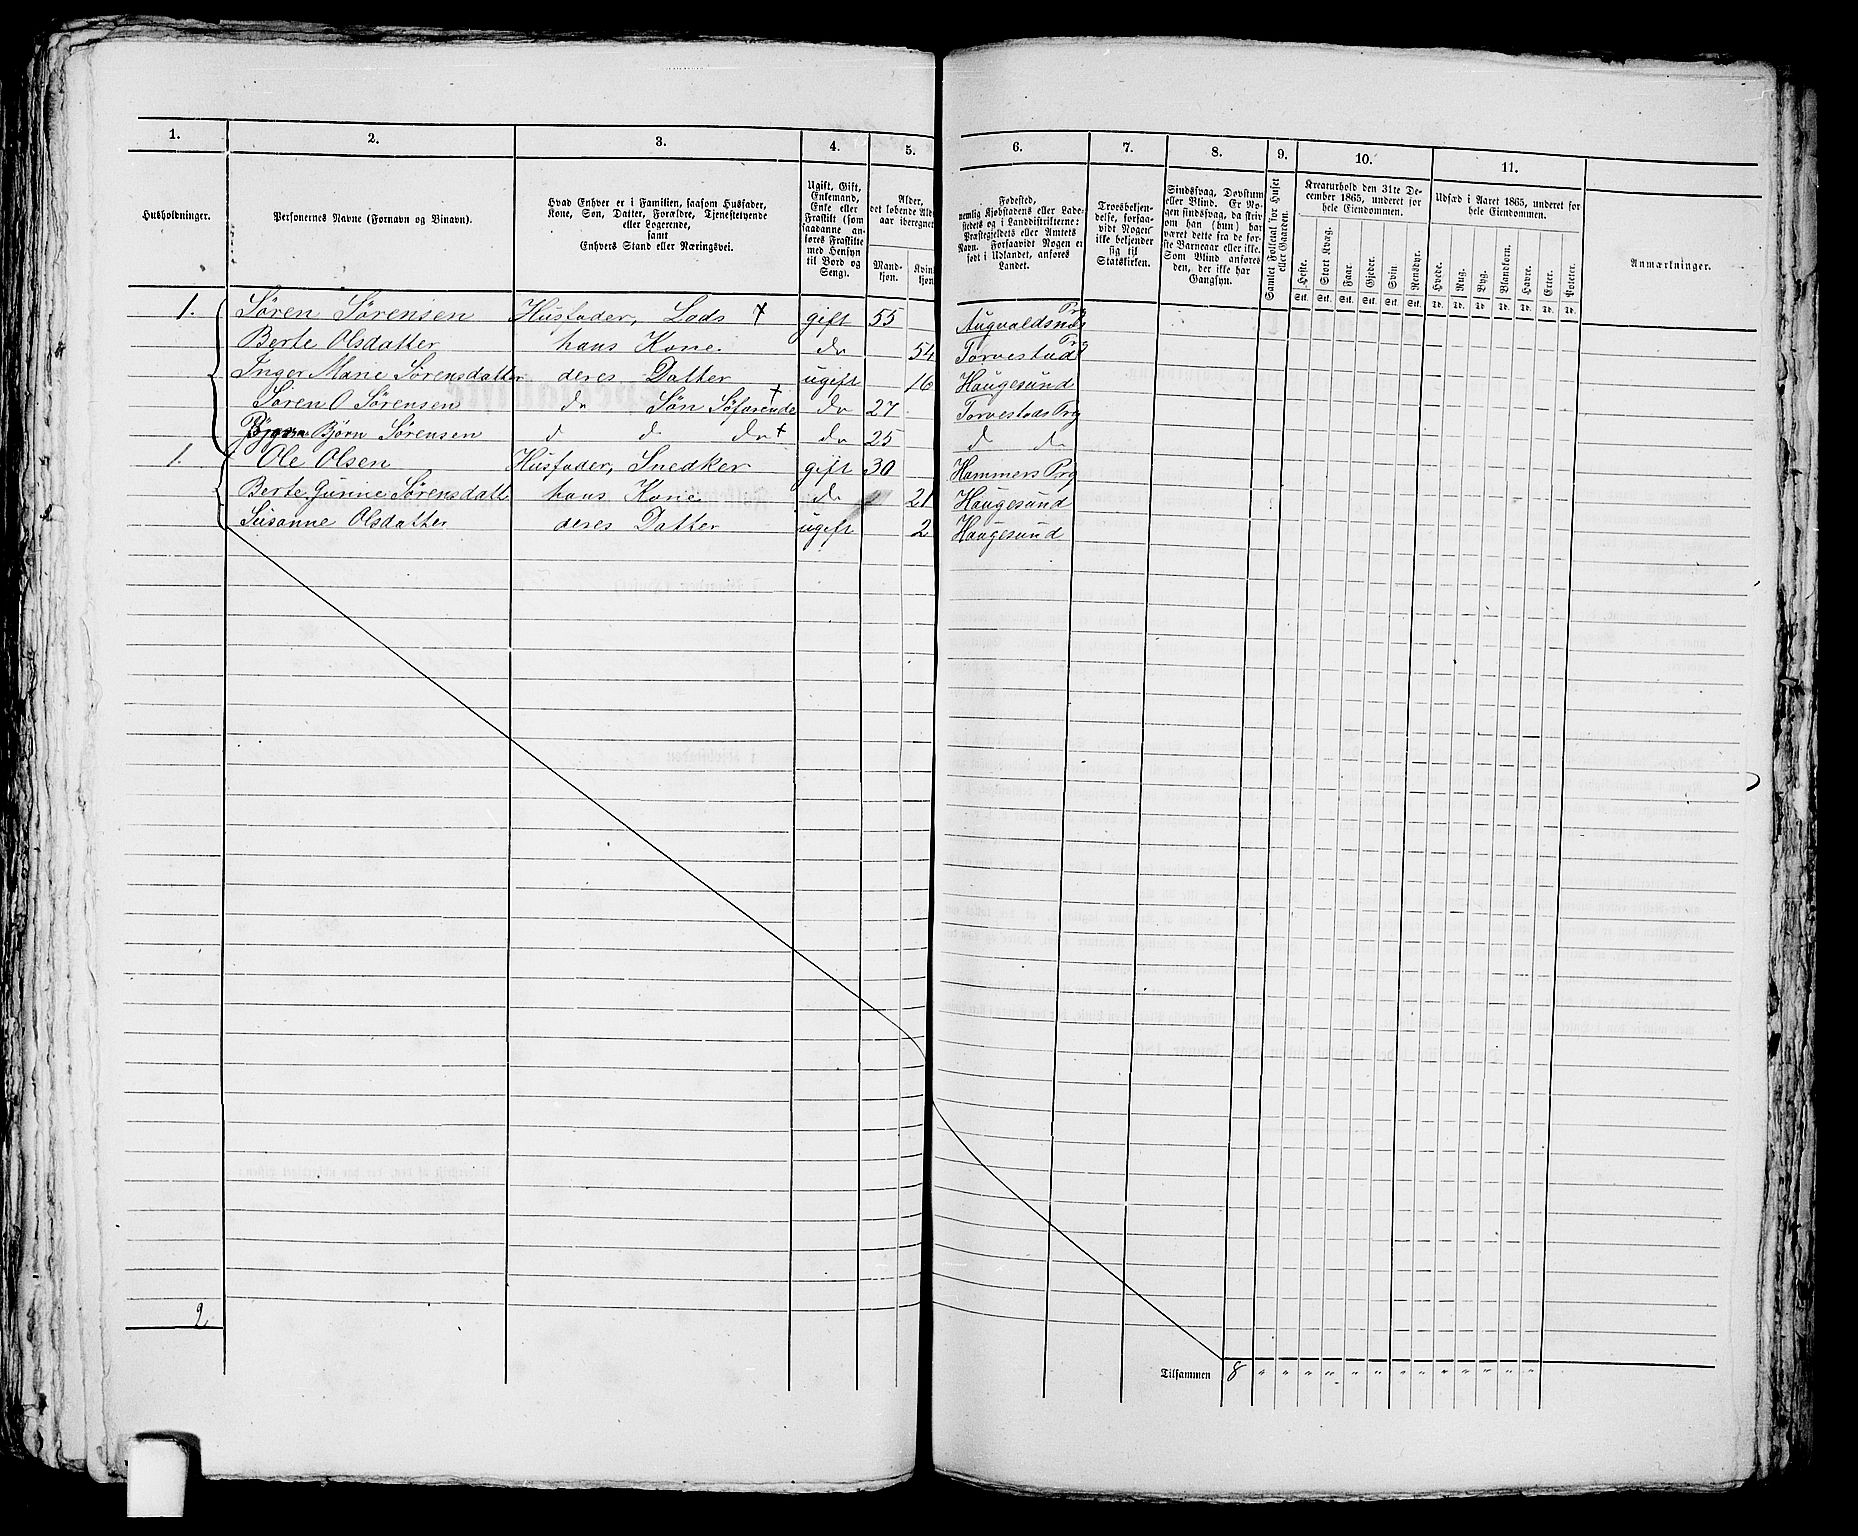 1. 2. 3. 4. 5. 6. 7. 8. 9. 10. 11.
Husholdninger.
Personernes Navne (Fornavn og Binavn).
Hvad Enhver er i Familien, saasom Husfader,
Kone, Søn, Datter, Forældre, Tjenestetyende
eller Logerende,
samt
Enhvers Stand eller Næringsvei.
Ugift, Gift,
Enkemand,
Enke eller
Fraskilt (som
saadanne an-
føres Fraskilte
med Hensyn
til Bord og
Seng).
Alder,
det løbende Alders-
aar iberegnet
Mand-
kjøn.
Kvin
kjøn
Fødested,
nemlig Kjøbstadens eller Lade-
stedets og i Landdistrikterne:
Præstegjeldets eller Amtets
Navn. Forsaavidt Nogen er
født i Udlandet, anføres
Landet.
Troesbekjen-
delse, forsaa-
vidt Nogen
ikke bekjender
sig til
Statskirken.
Sindssvag, Døvstum
eller Blind. Er No-
gen sindssvag, da skriv
om han (hun) har
været dette fra de før-
ste Barneaar eller ikke.
Som Blind anføres
den, der ikke har
Gangsyn.
Samlet Folketal for Huset
eller Gaarden.
Kreaturhold den 31te De-
cember 1865, underet for
hele Eiendommen.
Heste. Stort Kvæg. Faar. Gjeder. Svin Rensdyr.
Stk. Stk. Stk. Stk. Stk. Stk.
Udsæd i Aaret 1865, underet for
hele Eiendommen.
Hvede. Rug. Byg. Blandkorn. Havre. Erter. Poteter.
Td. Td. Td. Td. Td. Td. Td.
Anmærkninger.
1. Søren Sørensen Husfader, Lods + gift 55 Augvaldsnæs Prg
Berte Olsdatter hans Kone. do 54 Torvestad Prg
Inger Marie Sørensdatter deres Datter ugift 16 Haugesund
Søren O Sørensen do Søn Søfarende + do 27 Torvestads Prg
Bjørn Sørensen d d do + do 25 d do
1. Ole Olsen Husfader, Snedker gift 30 Hammers Prg
Berte Gurine Sørensdatt hans Kone do 21 Haugesund
Susanne Olsdatter deres Datter ugift 2 Haugesund
2
Tilsammen 8 " " " " " " " " " " " " "